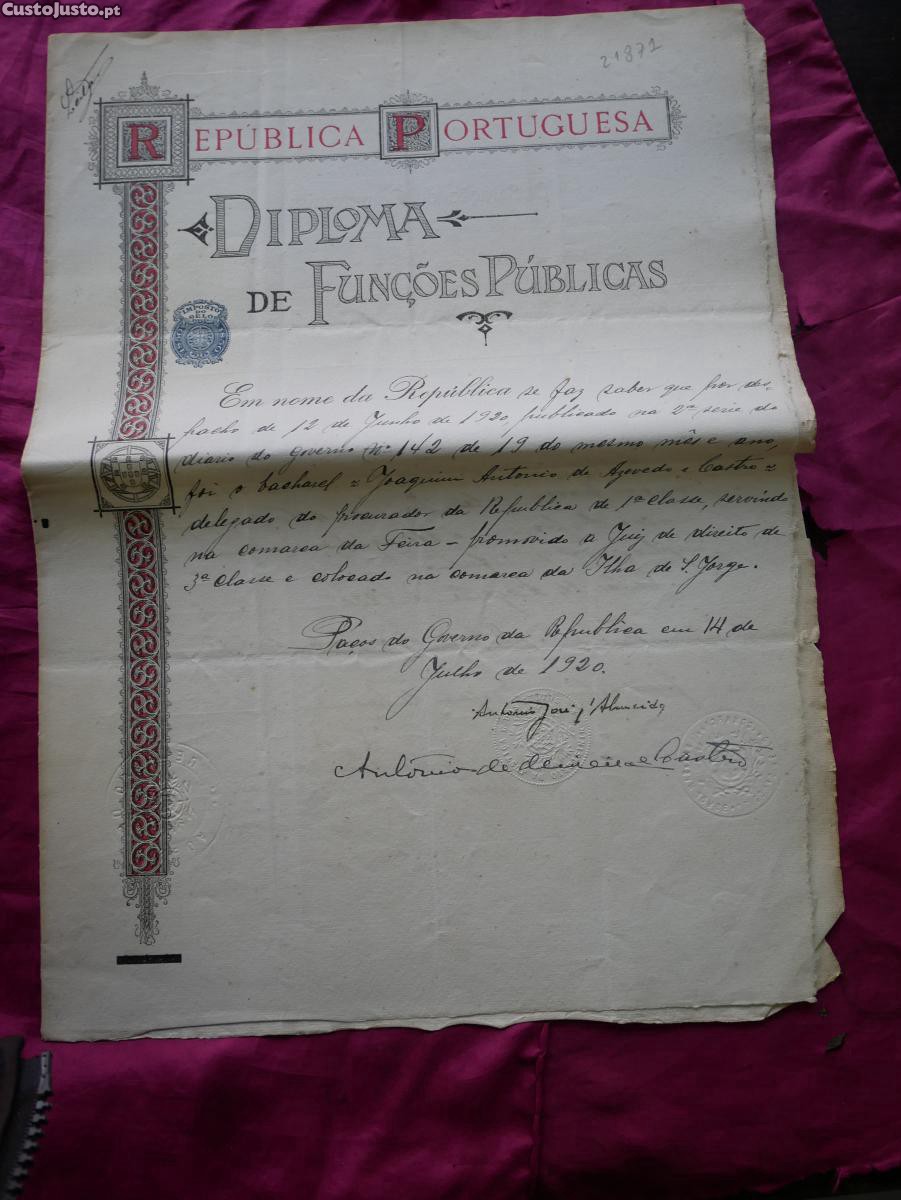 CustoJusto.pt
21871
REPÚBLICA PORTUGUESA
DIPLOMA
DE FUNÇÕES PÚBLICAS
IMPOSTO DO SELO
Em nome da República se faz saber que por des-
pacho de 12 de Junho de 1920, publicado na 2ª serie do
diario do governo nº 142 de 19 do mesmo mês e ano,
foi o bacharel = Joaquim Antonio de Azevedo e Castro =
delegado do procurador da Republica de 1ª classe, servindo
na comarca da Feira - promovido a Juiz de direito de
3ª classe e colocado na comarca da Ilha de S. Jorge.
Paços do Governo da Republica em 14 de
Julho de 1920.
Antonio José d'Almeida
António de Castro